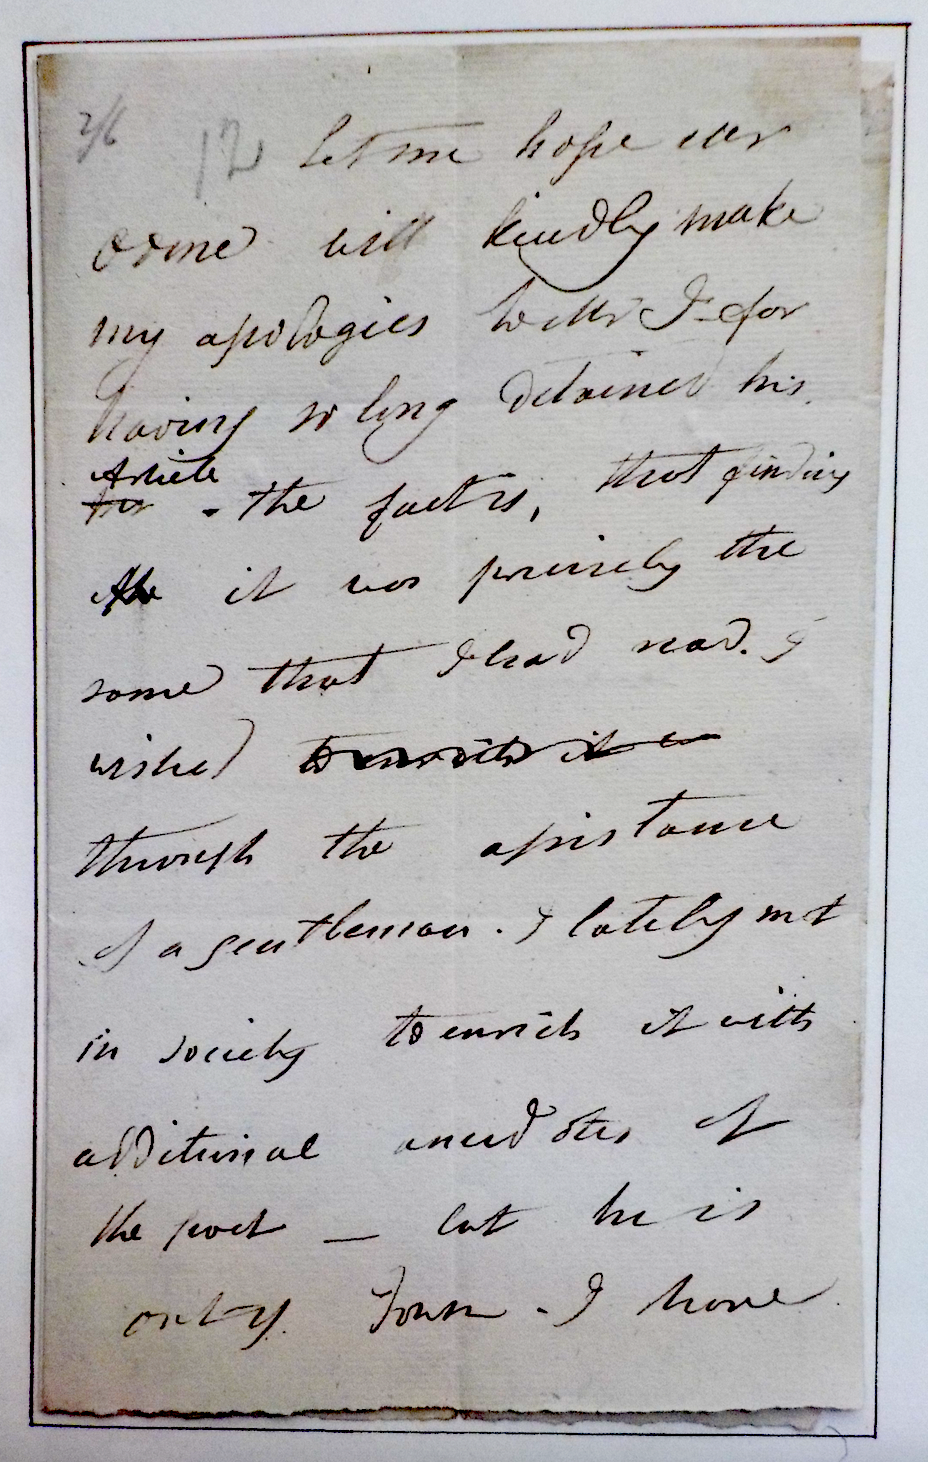 2/6 12 Let me hope
will kindly make
my apologies to Mr J- for
having so long detained his
Article
her - the fact is, that finding
it was precisely the
same that I had read. I
wished to enrich it
through the assistance
of a gentleman . I lately met
in society to enrich it with
additional anecdotes of
the poet — but he is
only . I have